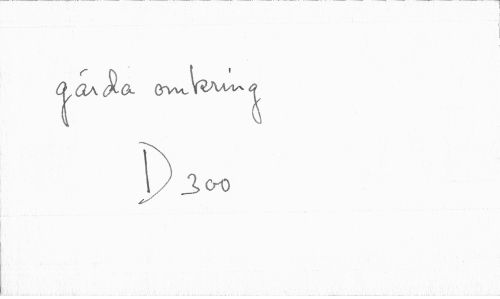 gärda omkring
D 300